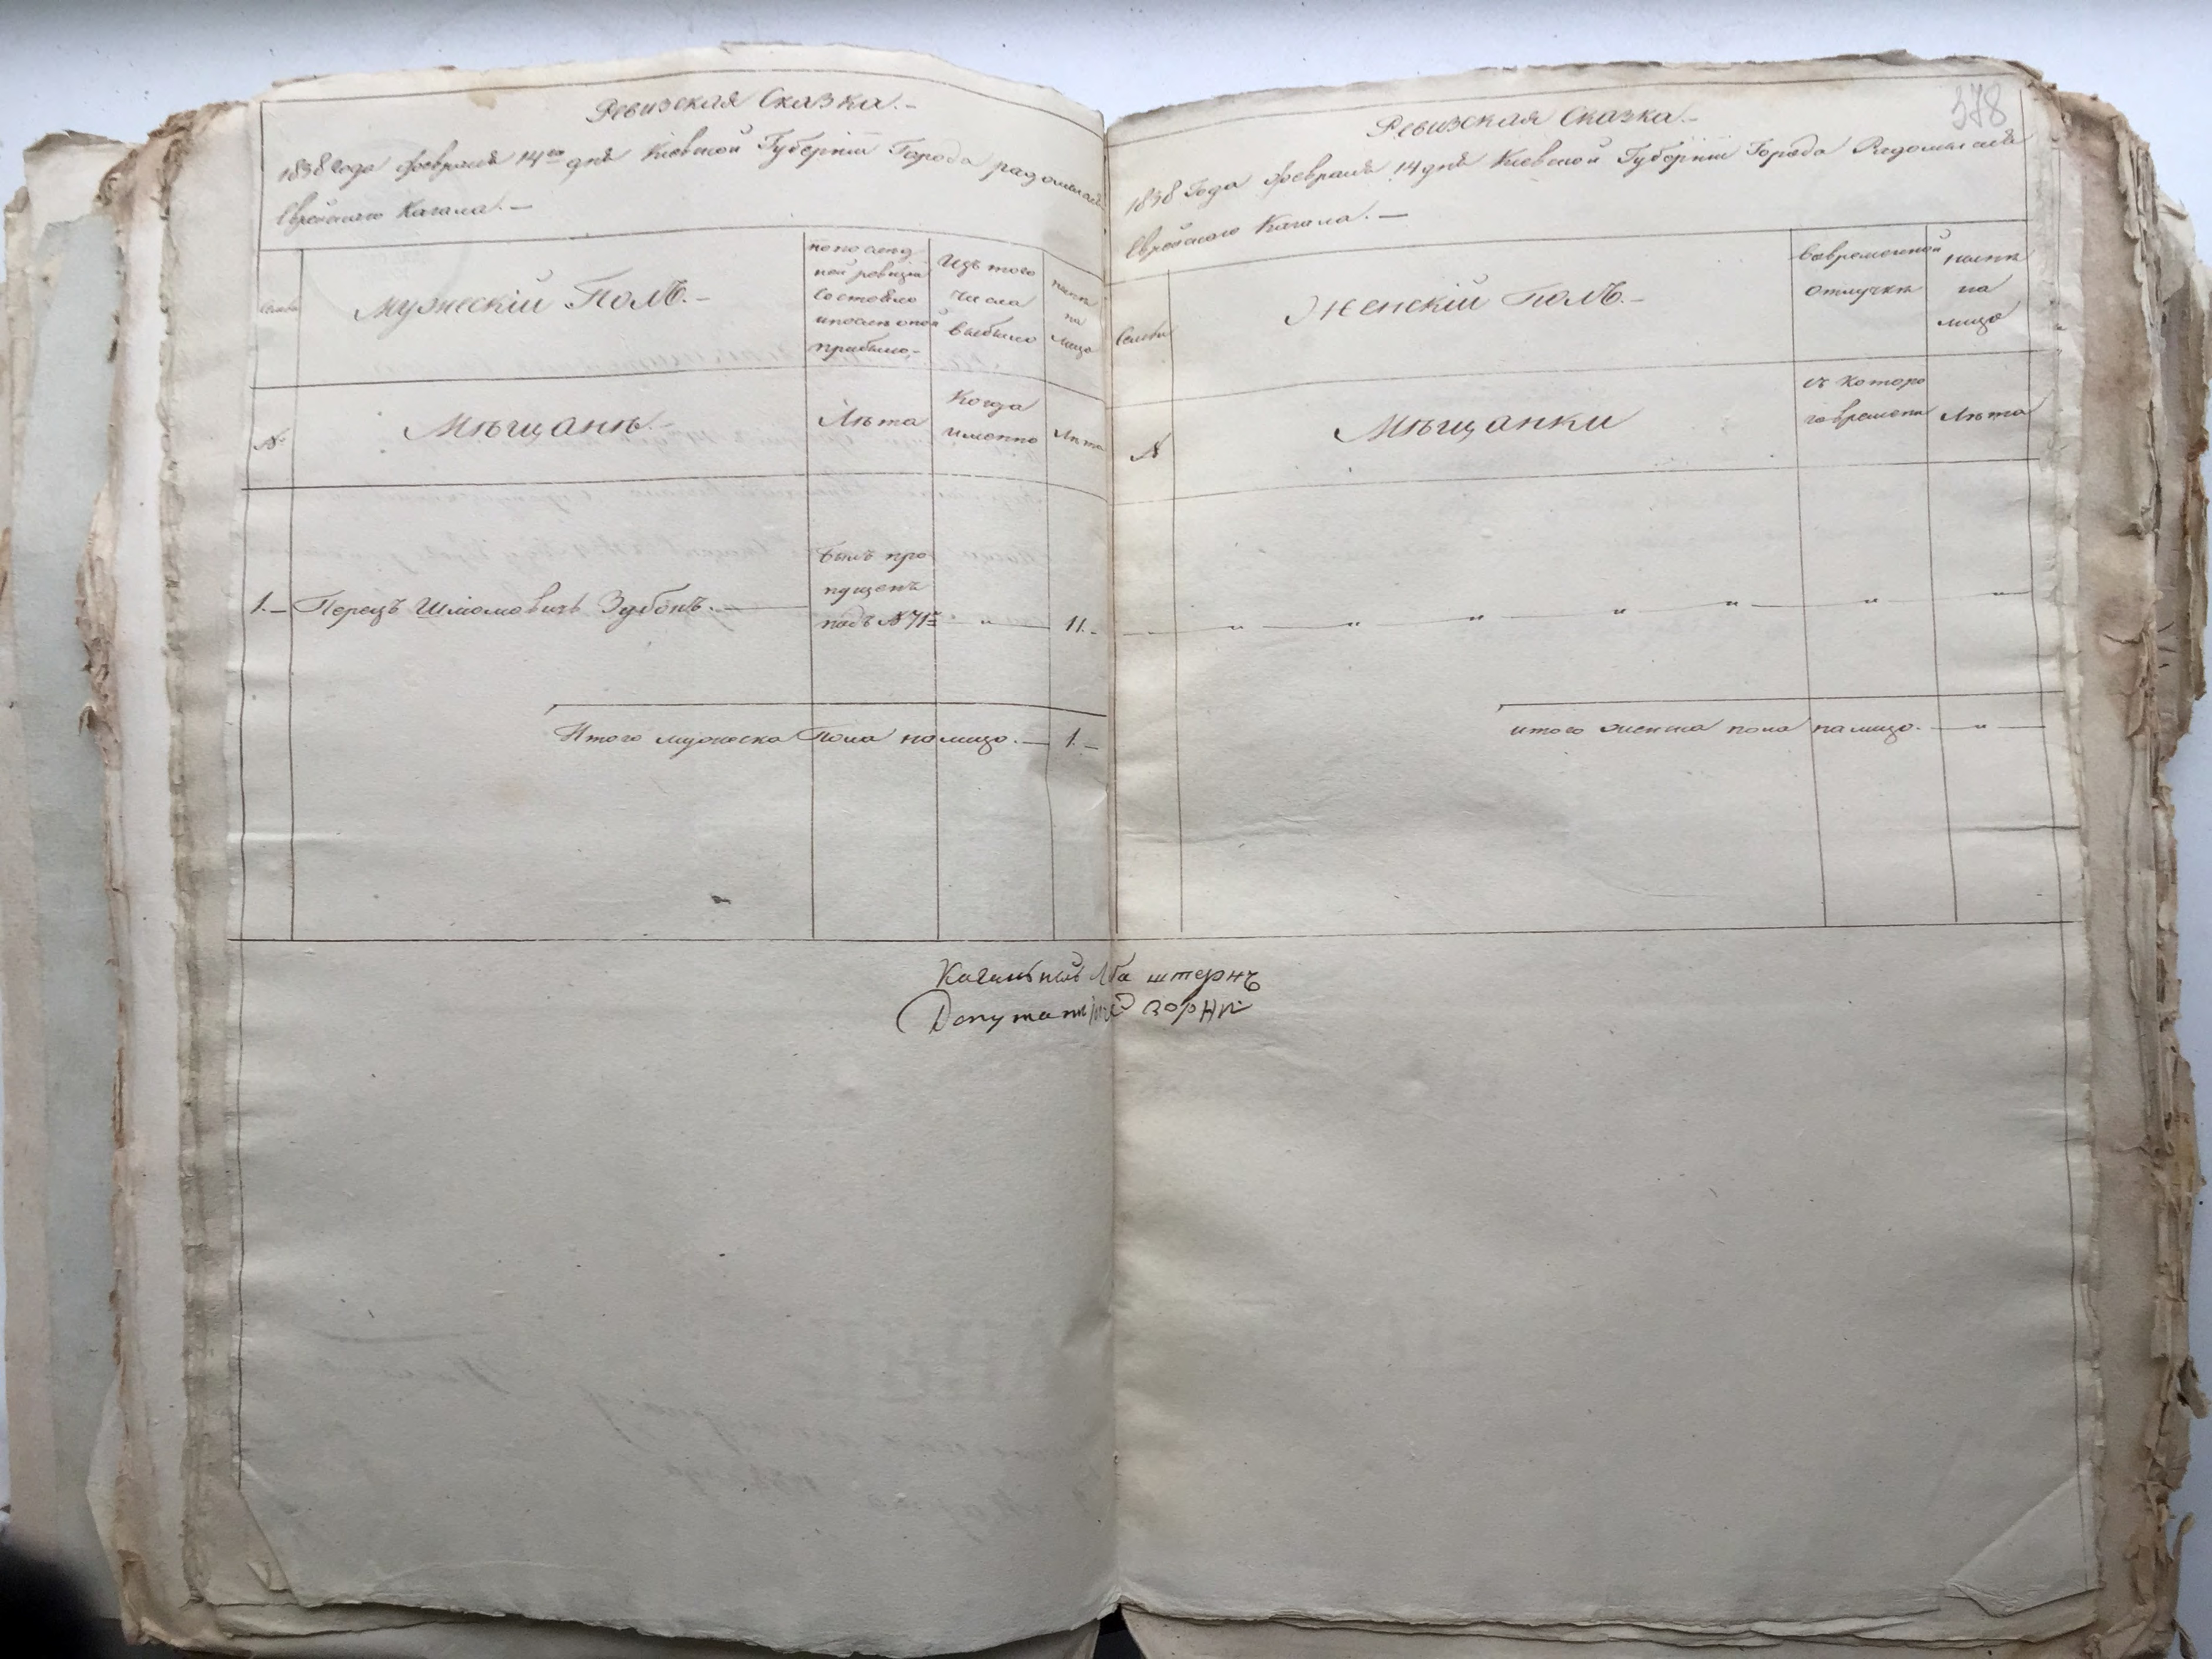 Ревизская Сказка.-
1838 года февраля 14го дня Киевской Губернiи Города радомысля
Еврейского Кагала.-
Семьи
Мужескiй Полъ.-
по послед
ней ревизiи
состояло
и после оной
прибыло.-
Изъ того
числа
выбыло
ныне
на
лицо
№
Мѣщанѣ.-
Лѣта
Когда
именно
Лѣта
1.- Перецъ Шлiомовичъ Зубокъ.-
былъ про
пущенъ
подъ №71м
"
11.-
Итого мужеска Пола на лицо.- 1.-
378
Ревизская Сказка.-
1838 Года февраля 14 дня Киевской Губернiи Города Радомысля
Еврейского Кагала.-
Семьи
Женскiй Полъ.-
Вовременной
отлучкѣ
ныне
на
лицо
№
Мѣщанки
съ которо
го времени
Лѣта
" " " " " " "
итого женска пола налицо.- "
Кагальный штернъ